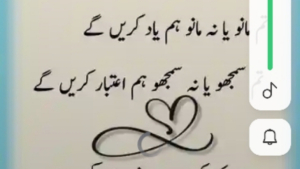 تم مانو یا نہ مانو ہم یاد کریں گے
تم سمجھو یا نہ سمجھو ہم اعتبار کریں گے